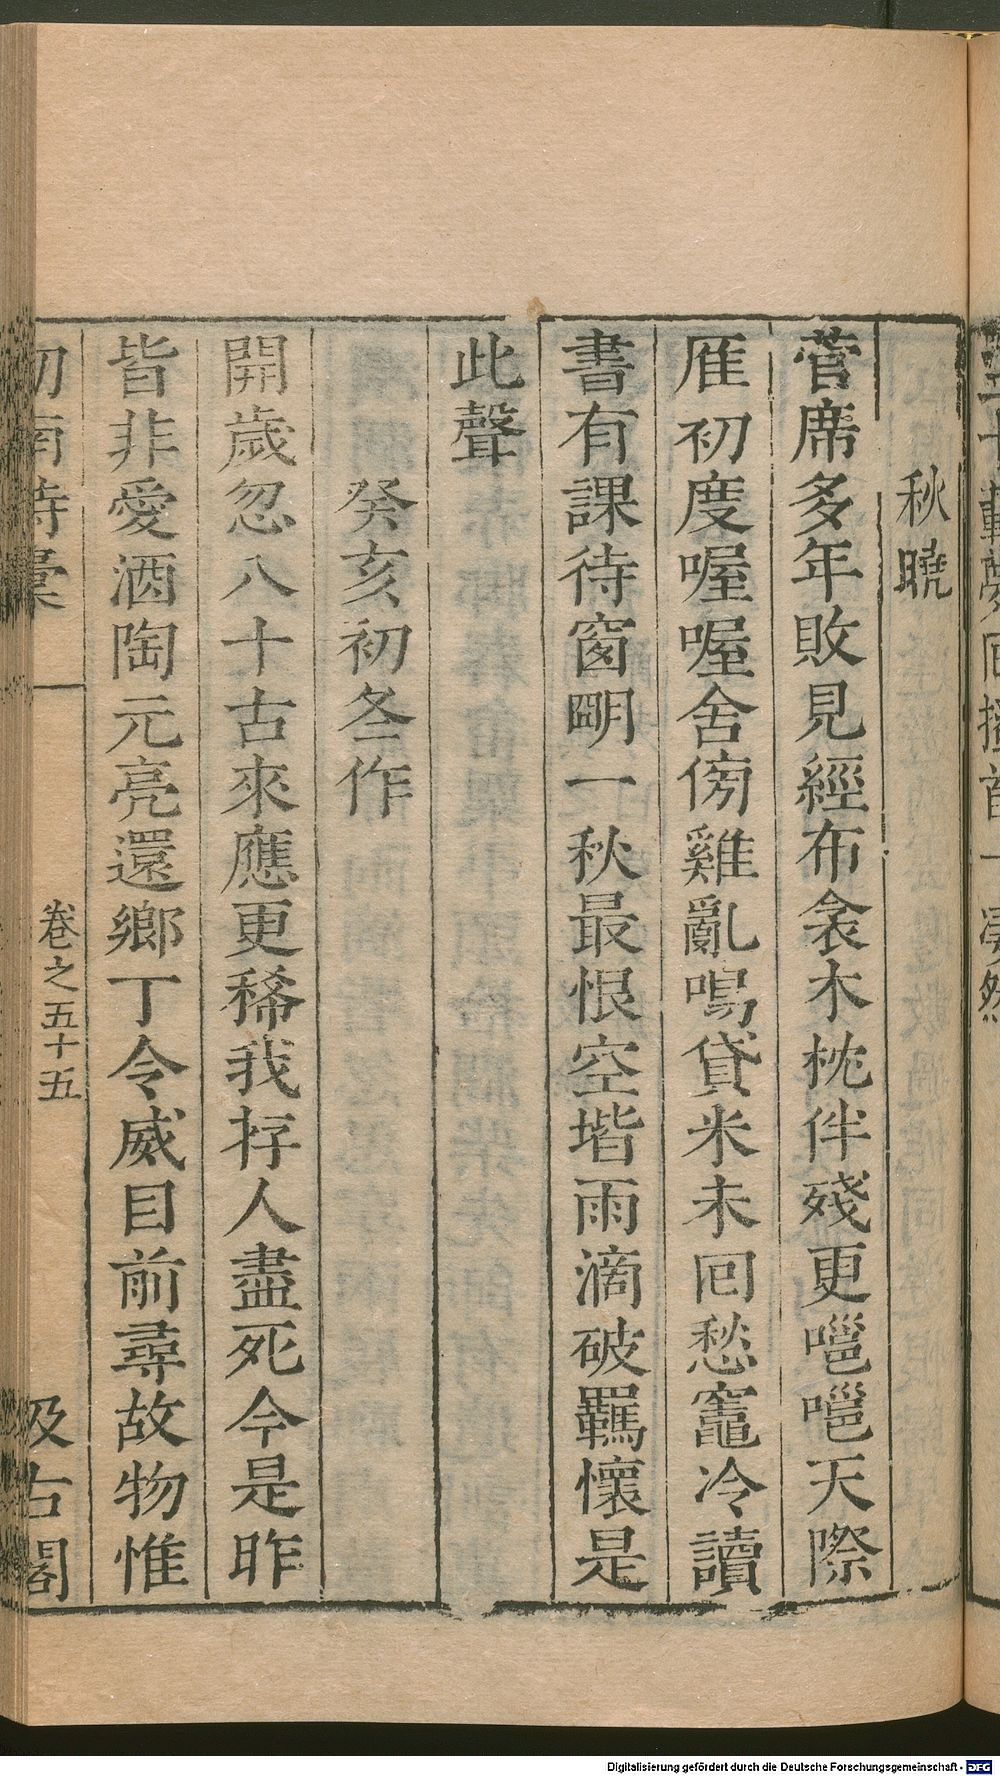 秋曉
菅席多年敗見經布衾木枕伴殘更嗈嗈天際
雁初度喔喔舍傍雞亂鳴貸米未回愁竈冷讀
書有課待窗明一秋最恨空堦雨滴破羈懷是
此聲
癸亥初冬作
開歲忽八十古來應更稀我存人盡死今是昨
皆非愛酒陶元亮還鄉丁令威目前尋故物惟
劍南詩稾
卷之五十五
汲古閣
Digitalisierung gefördert durch die Deutsche Forschungsgemeinschaft - DFG